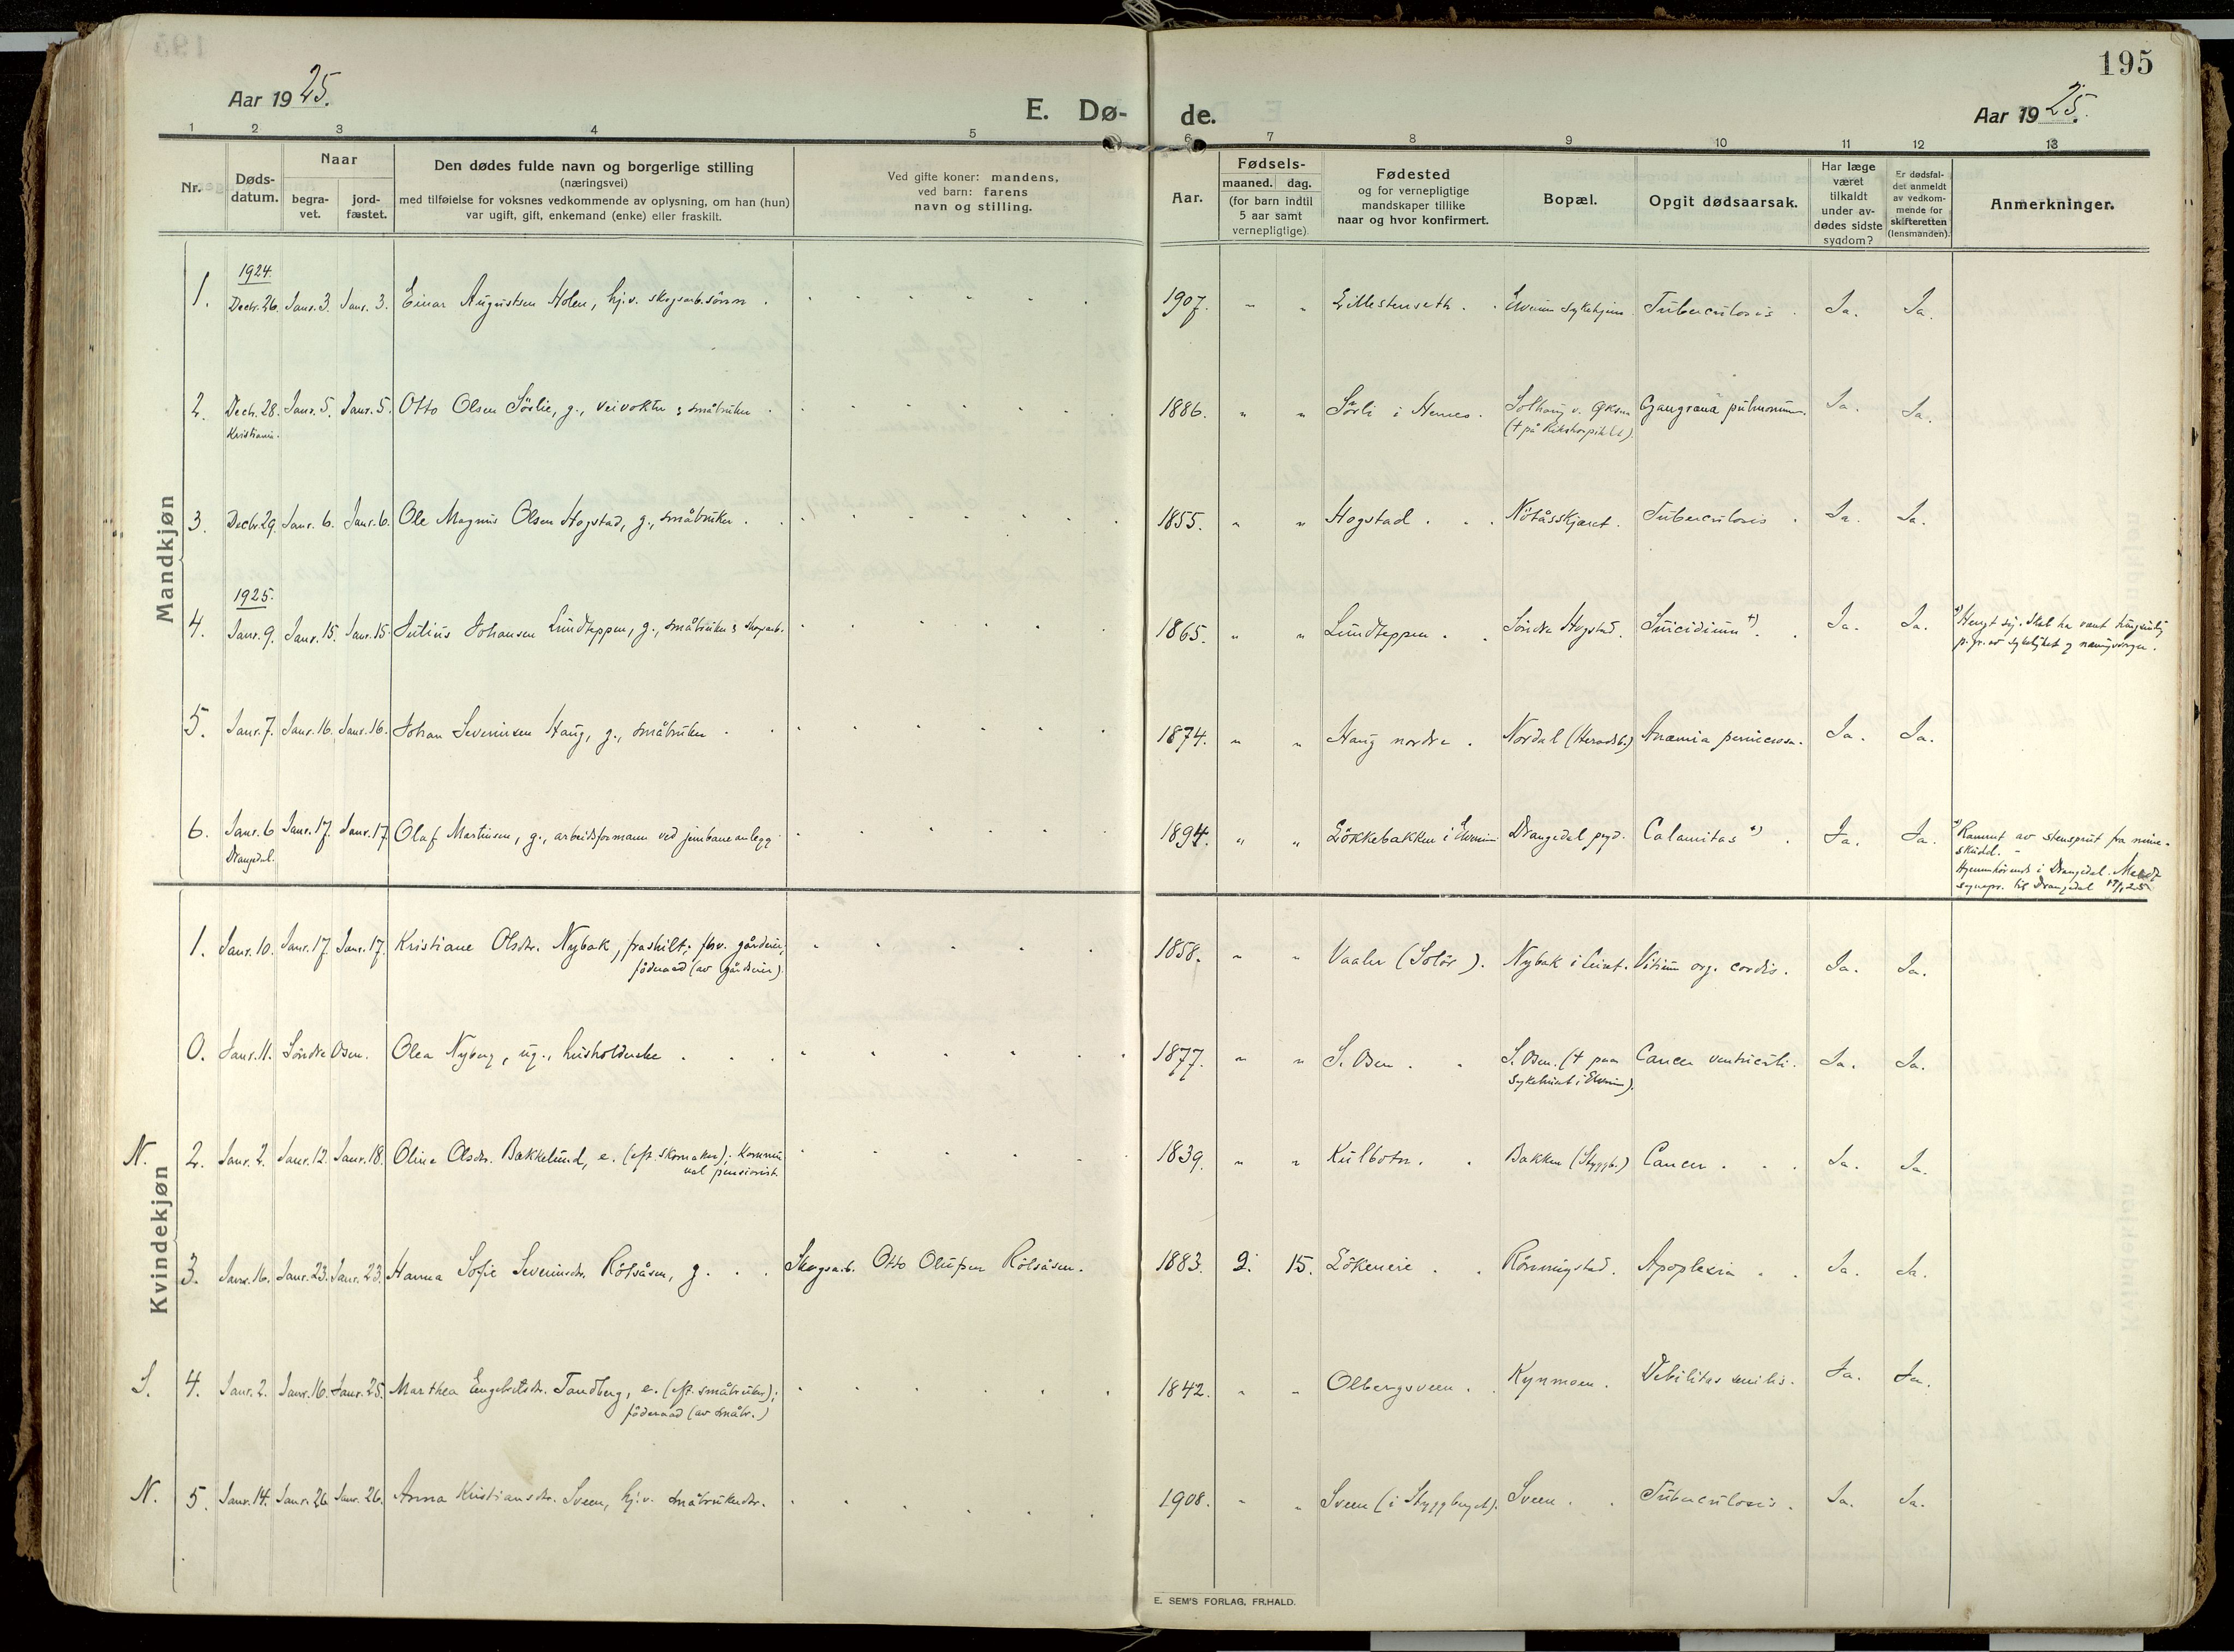 195
Aar 1925.
E. Dø- de.
Aar 1925.
1 2 3 4 5 6 7 8 9 10 11 12 13
Nr.
Døds-
datum.
Naar
begra-
vet.
jord-
fæstet.
Den dødes fulde navn og borgerlige stilling
(næringsvei)
med tilføielse for voksnes vedkommende av oplysning, om han (hun)
var ugift, gift, enkemand (enke) eller fraskilt.
Ved gifte koner: mandens,
ved barn: farens
navn og stilling.
Aar.
Fødsels-
maaned. dag.
(for barn indtil
5 aar samt
vernepligtige)
Fødested
og for vernepligtige
mandskaper tillike
naar og hvor konfirmert.
Bopæl.
Opgit dødsaarsak.
Har læge
været
tilkaldt
under av-
dødes sidste
sygdom?
Er dødsfal-
det anmeldt
av vedkom-
mende for
skifteretten
(lensmanden).
Anmerkninger.
Mandkjøn
1924.
1. Decbr. 26. Janr. 3. Janr. 3. Einar Augustsen Holen, hj.v. skogsarb.sönn. 1907. " " Lillestenseth. Elverum Sykehjem. Tuberculosis. Ja. Ja.
2. Decbr. 28. Janr. 5. Janr. 5. Otto Olsen Sörlie, g., veivokter & småbruker. 1886. " " Sörli i Hernes. Solhaug v. Öksna Gangræna pulmonum. Ja. Ja.
Kristiania. († på Rikshospitalet).
3. Decbr. 29. Janr. 6. Janr. 6. Ole Magnus Olsen Hogstad, g., småbruker. 1855. " " Hogstad. Nötåsskjæret. Tuberculosis. Ja. Ja.
1925.
4. Janr. 9. Janr. 15. Janr. 15. Julius Johansen Lundteppen, g., småbruker & skogsarb. 1865. " " Lundteppen. Söndre Hogstad. Suicidium +). Ja. Ja. +) Hengt sig. Skal ha vært tungsindig
p. gr. av sykelighet og næringssorger.
5. Janr. 7. Janr. 16. Janr. 16. Johan Severinsen Haug, g., småbruker. 1874. " " Haug nordre. Nordal (Heradsb.) Anæmia perniciosa. Ja. Ja.
6. Janr. 6 Janr. 17. Janr. 17. Olaf Martinsen, g., arbeidsformann ved jernbaneanlegg. 1894. " " Lökkebakken i Elverum Drangedal pgd. Calamitas +). Ja. Ja. +) Rammt av stensprut fra mine-
Drangedal. skudd. -
Hjemmehörende i Drangedal. Meldt
sognepr. til Drangedal 19/1 25.
Kvindekjøn
1. Janr. 10. Janr. 17. Janr. 17. Kristiane Olsdtr. Nybak, fraskilt; fhv. gårdeier, 1858. " " Vaaler (Solör). Nybak i Leiret. Vitium org. cordis. Ja. Ja.
föderaad (av gårdeier).
0. Janr. 11. Söndre Osen. Olea Nyberg, ug., husholderske. 1877. " " S. Osen. S. Osen. († paa Cancer ventriculi. Ja. Ja.
sykehuset i Elverum).
N. 2. Janr. 2. Janr. 12. Janr. 18. Oline Olsdtr. Bakkelund, e. (eft. skomaker). Kommu 1839. " " Kulbotn. Bakken (Styggb.) Cancer. Ja. Ja.
nal pensionist.
3. Janr. 16. Janr. 23. Janr. 23. Hanna Sofie Severinsdtr. Rölsåsen, g. Skogsarb. Otto Olufsen Rölsåsen. 1883. 2. 15. Lökeneie. Rönningstad. Apoplexia. Ja. Ja.
S. 4. Janr. 2. Janr. 16. Janr. 25. Marthea Engebretsdtr. Tandberg, e. (eft. småbruker); 1842. " " Olbergsveen. Kynmoen. Debilitas senilis. Ja. Ja.
föderaad (av småbr.)
N. 5. Janr. 14. Janr. 26 Janr. 26. Anna Kristiansdtr. Sveen, hj.v. småbrukerdtr. 1908. " " Sveen (i Styggberget). Sveen. Tuberculosis. Ja. Ja.
E. SEM'S FORLAG, FR.HALD.